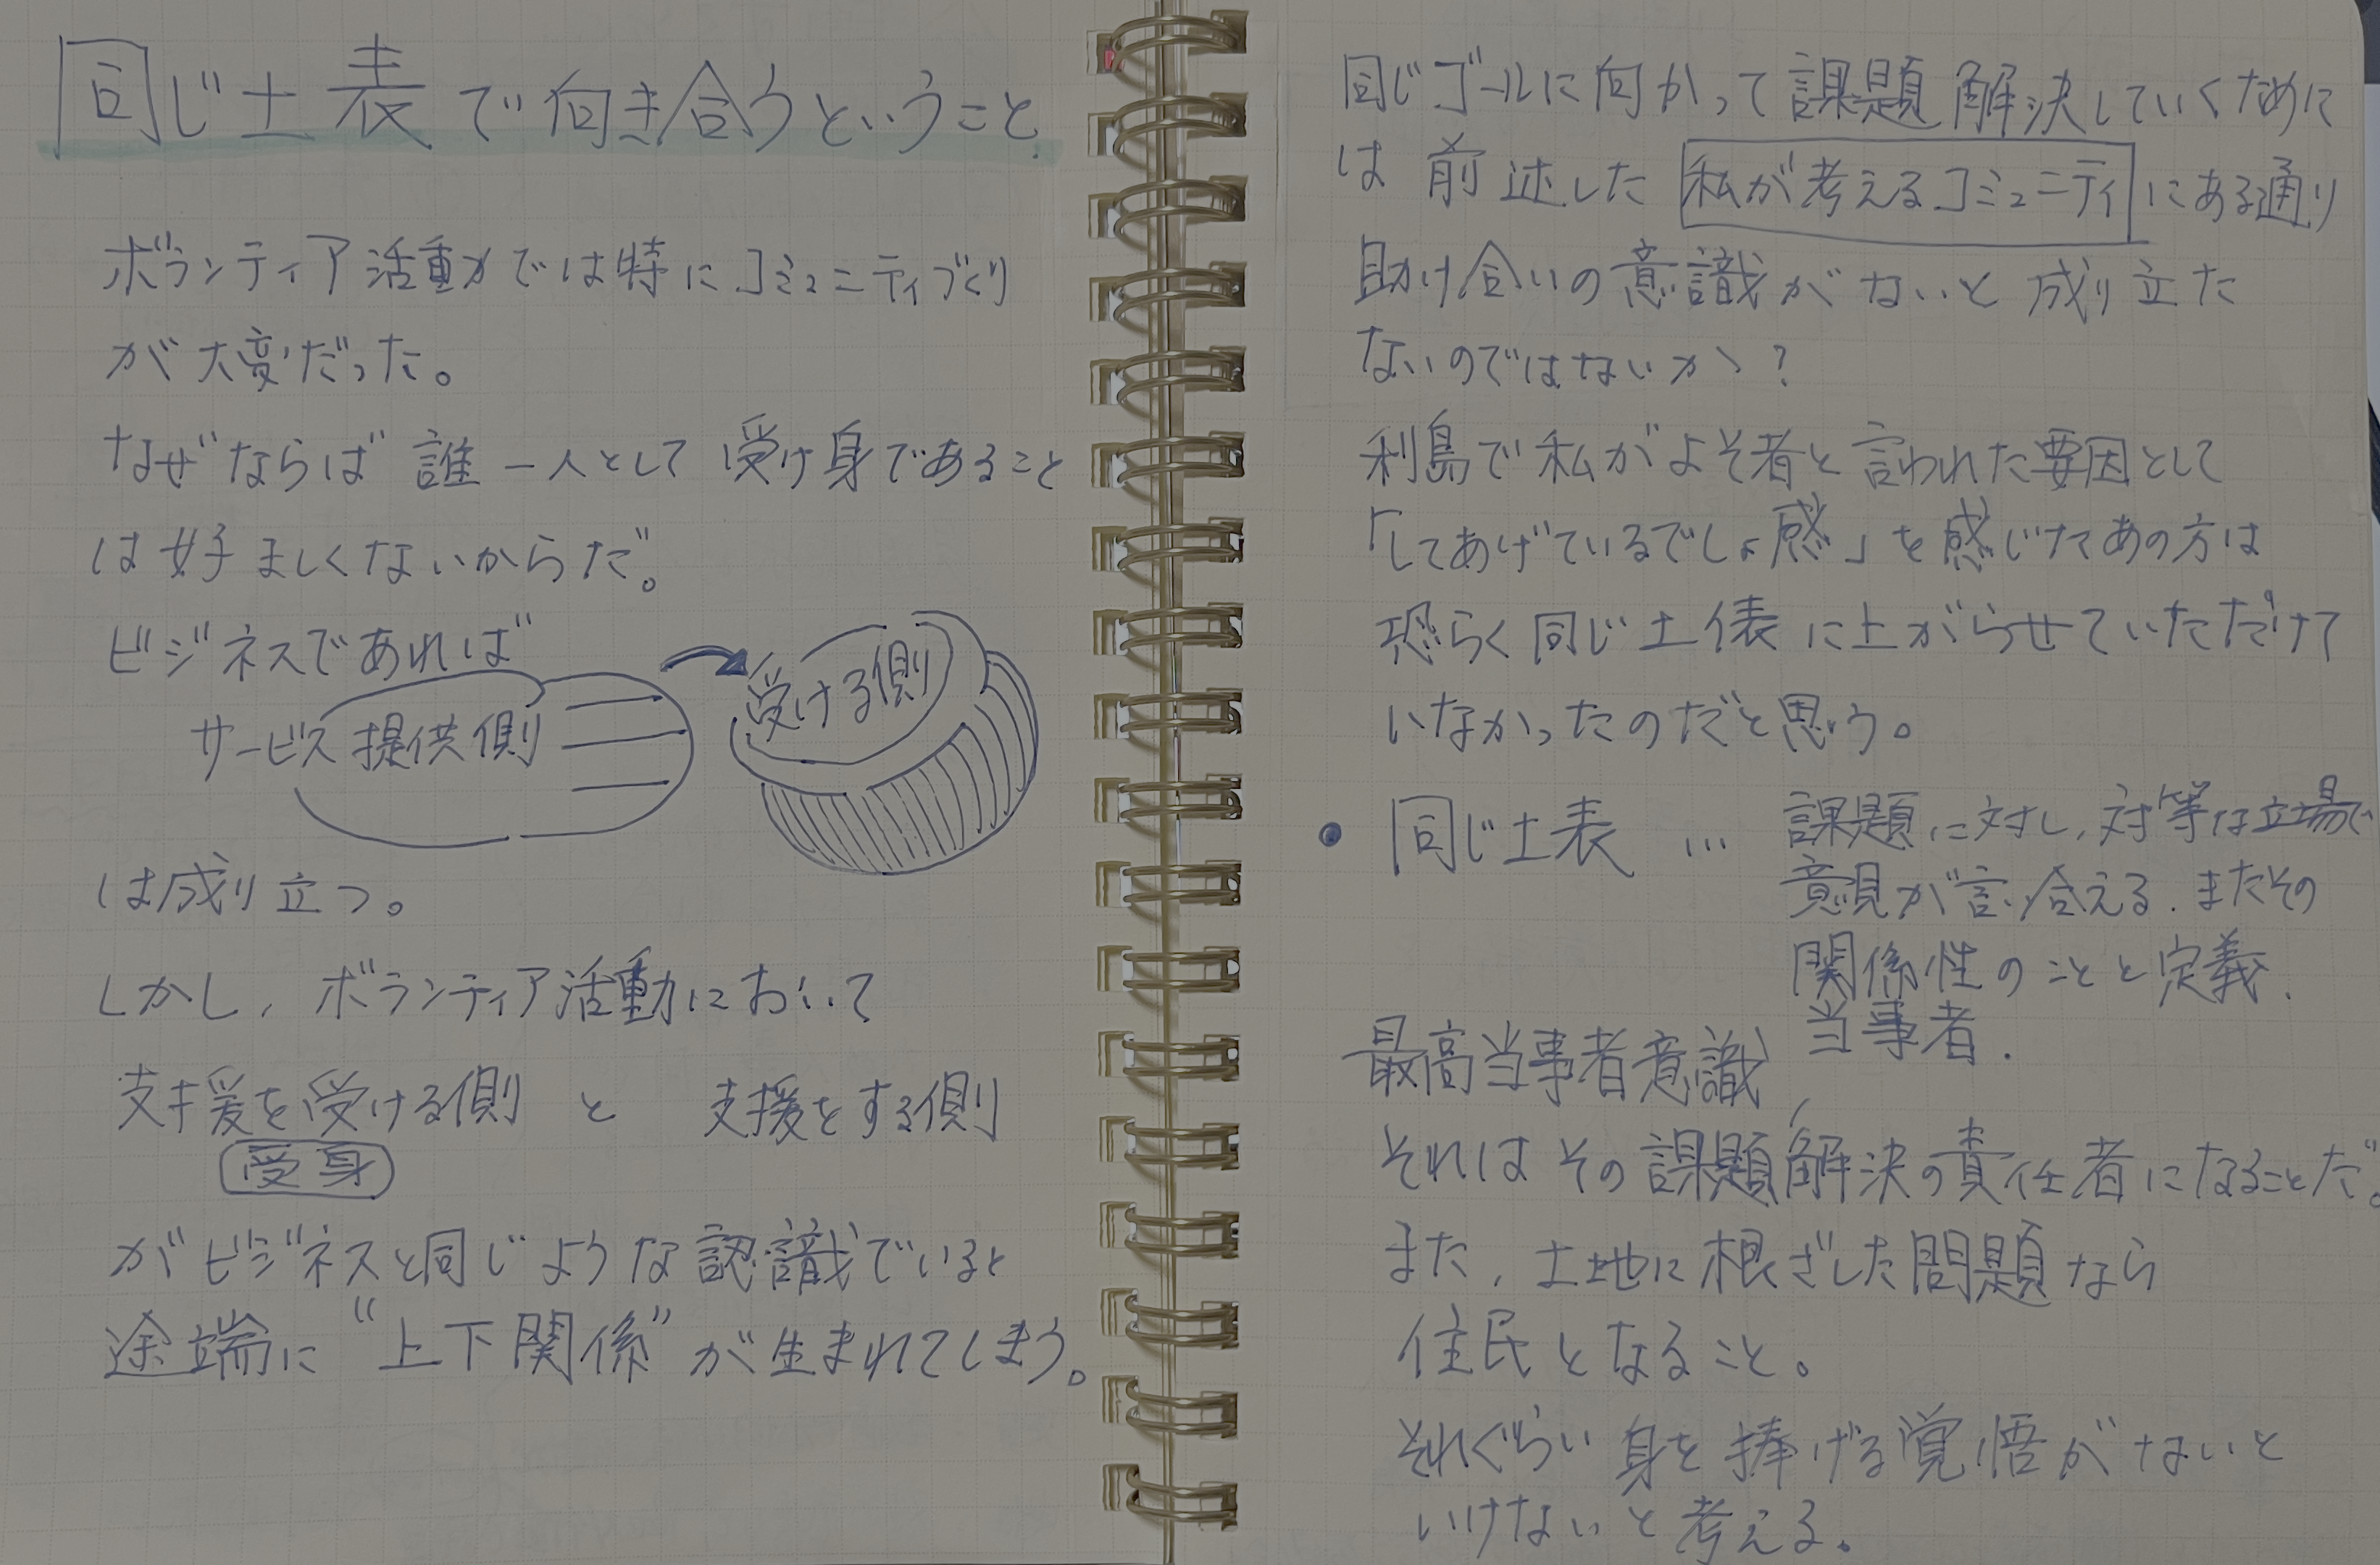 同じ土表で向き合うということ.
ボランティア活動では特にコミュニティづくり
が大変だった。
なぜならば 誰一人として 受け身であること
は好ましくないからだ。
ビジネスであれば
サービス提供側
受ける側
は成り立つ。
しかし、ボランティア活動において
支援を受ける側 と 支援をする側
受身
がビジネスと同じような認識でいると
途端に“上下関係”が生まれてしまう。
同じゴールに向かって課題解決していくために
は 前述した 私が考えるコミュニティ にある通り
助け合いの意識がないと成り立た
ないのではないか?
利島で私がよそ者と言われた要因として
「してあげているでしょ感」を感じたあの方は
恐らく同じ土俵に上がらせていただけて
いなかったのだと思う。
● 同じ土表 … 課題に対し、対等な立場で
意見が言い合える. またその
関係性のことと定義.
当事者.
最高当事者意識
それはその課題解決の責任者になることだ。
また、土地に根ざした問題なら
住民となること。
それぐらい身を捧げる覚悟がないと
いけないと考える。